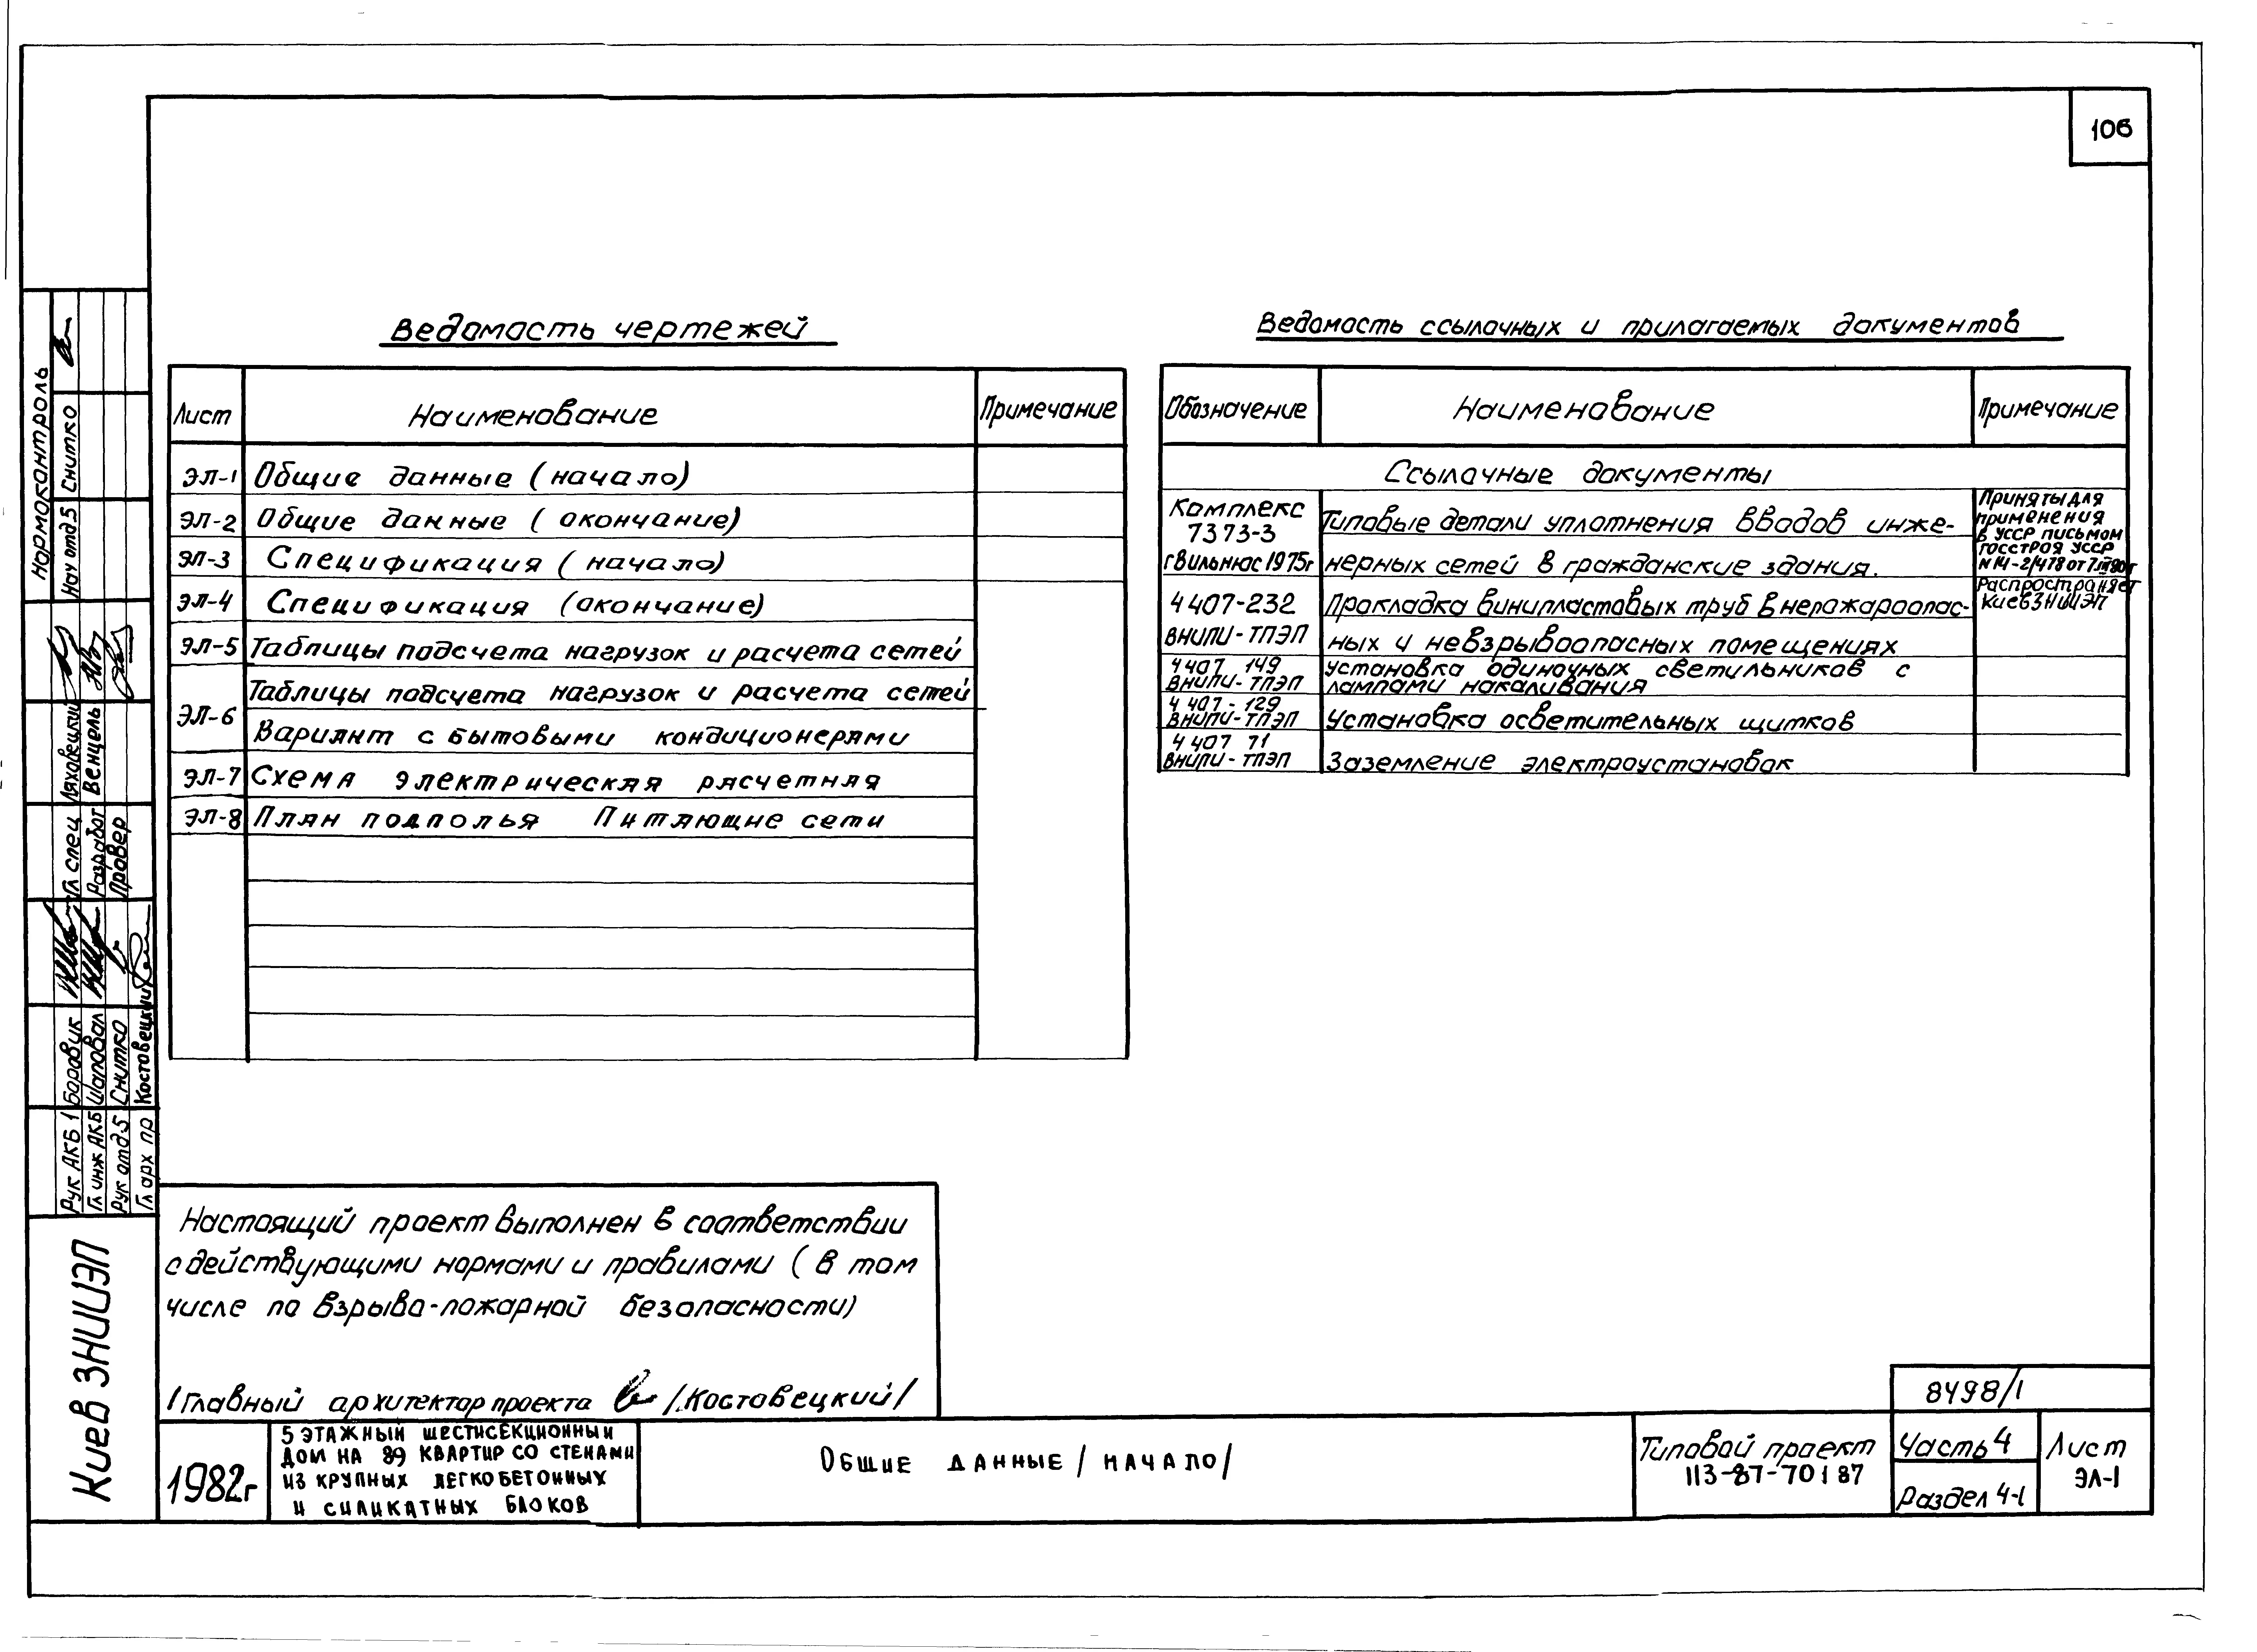 106
Ведомость чертежей
Лист Наименование Примечание
ЭЛ-1 Общие данные (начало)
ЭЛ-2 Общие данные (окончание)
ЭЛ-3 Спецификация (начало)
ЭЛ-4 Спецификация (окончание)
ЭЛ-5 Таблицы подсчета нагрузок и расчета сетей
ЭЛ-6 Таблицы подсчета нагрузок и расчета сетей
Вариант с бытовыми кондиционерами
ЭЛ-7 Схема электрическая расчетная
ЭЛ-8 План подполья Питающие сети
Ведомость ссылочных и прилагаемых документов
Обозначение Наименование Примечание
Ссылочные документы
Комплекс
7373-3
г Вильнюс 1975г
Типовые детали уплотнения вводов инже-
нерных сетей в гражданские здания.
Приняты для
применения
в УССР письмом
Госстроя УССР
N14-2/478 от
Распространяет
КиевЗНИИЭП
4407-232
ВНИПИ-ТПЭП
Прокладка винипластовых труб в непожароопас-
ных и невзрывоопасных помещениях
4407 149
ВНИПИ-ТПЭП
Установка одиночных светильников с
лампами накаливания
4407-129
ВНИПИ-ТПЭП
Установка осветительных щитков
4407 71
ВНИПИ-ТПЭП
Заземление электроустановок
Настоящий проект выполнен в соответствии
с действующими нормами и правилами (в том
числе по взрыво-пожарной безопасности)
/Главный архитектор проекта /Костовецкий/
Нормоконтроль
Нач отд 5 Снитко
Гл спец Ляховецкий
Разработ Венцель
Провер
Рук АКБ 1 Боровик
Гл инж АКБ Шаповал
Рук отд 5 Снитко
Гл арх пр Костовецкий
Киев ЗНИИЭП
1982г
5 ЭТАЖНЫЙ ШЕСТИСЕКЦИОННЫЙ
ДОМ НА 89 КВАРТИР СО СТЕНАМИ
ИЗ КРУПНЫХ ЛЕГКОБЕТОННЫХ
И СИЛИКАТНЫХ БЛОКОВ
Общие данные /начало/
Типовой проект
113-87-70187
8498/1
Часть 4
Раздел 4-1
Лист
ЭЛ-1